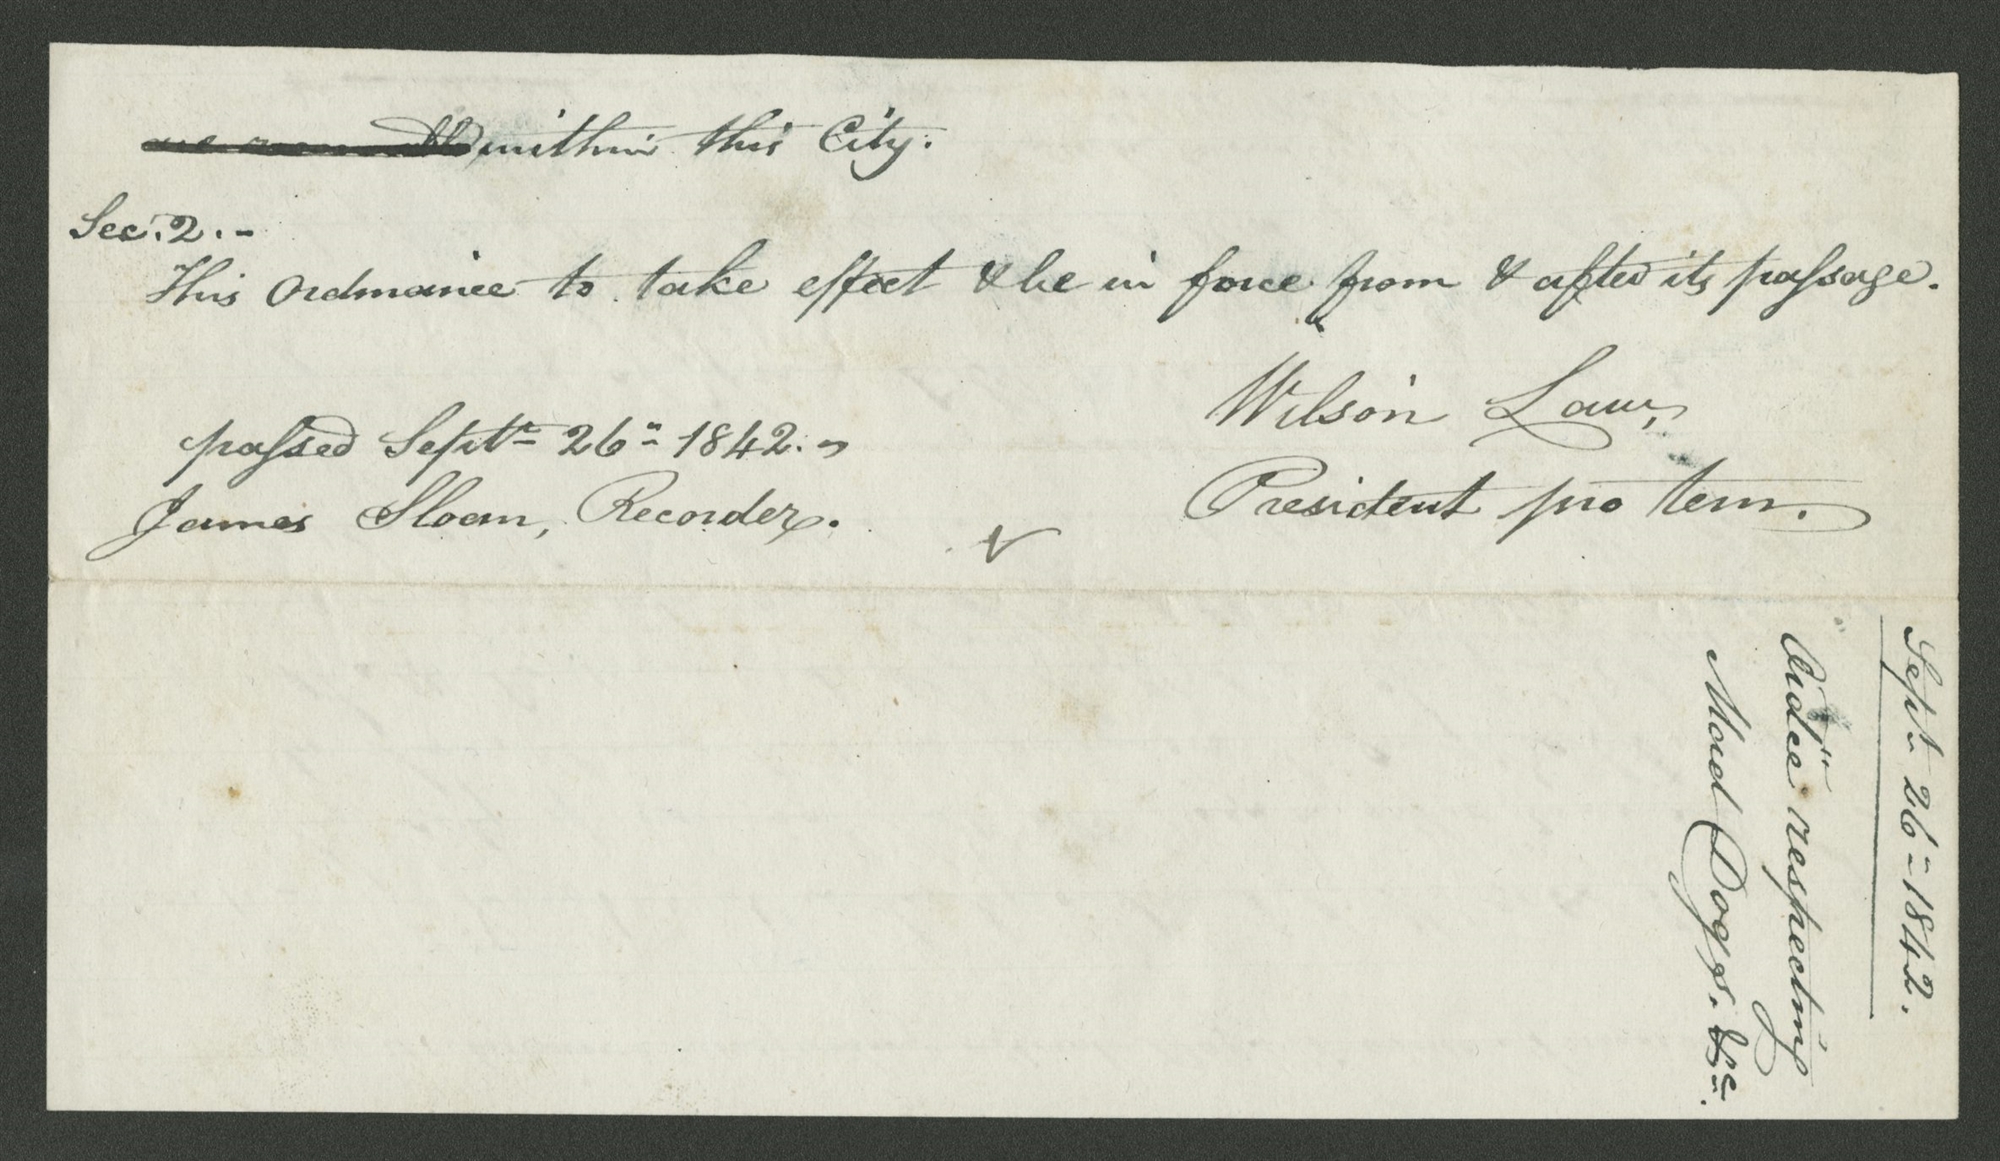 within this City.
Sec. 2. -
This Ordinance to take effect & be in force from & after its passage.
Wilson Law,
passed Sept. 26" 1842. -
President pro tem.
James Sloan, Recorder.
Sept. 26" 1842.
Ordce respecting
Mad Dogs. &c.